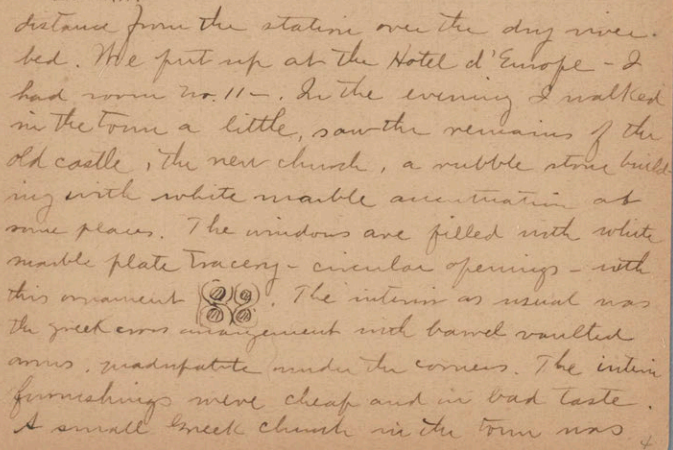 distance from the station over the dry river-
bed. We put up at the Hotel d'Europe - I
had room No. 11 -. In the evening I walked
in the town a little, saw the remains of the
old castle, the new church, a rubble stone build-
ing with white marble accentuation at
some places. The windows are filled with white
marble plate tracery - circular openings - with
this ornament. The interior as usual was
the greek cross arrangement with barrel vaulted
arms, under the corners. The interior
furnishings were cheap and in bad taste.
A small Greek church in the town was